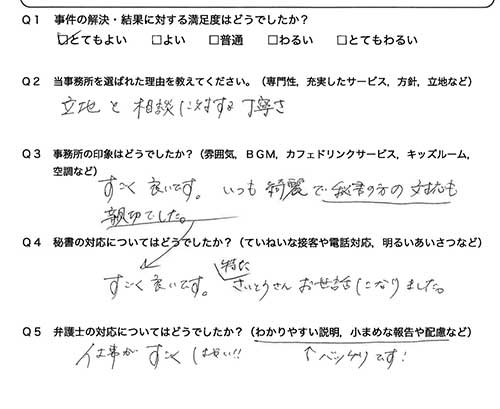 Q1 事件の解決・結果に対する満足度はどうでしたか?
☑とてもよい □よい □普通 □わるい □とてもわるい
Q2 当事務所を選ばれた理由を教えてください。(専門性, 充実したサービス, 方針, 立地など)
立地と相談に対する丁寧さ
Q3 事務所の印象はどうでしたか?(雰囲気, BGM, カフェドリンクサービス, キッズルーム,
空調など)
すごく良いです。いつも綺麗で秘書の方の対応も
親切でした。
Q4 秘書の対応についてはどうでしたか?(ていねいな接客や電話対応, 明るいあいさつなど)
特に
すごく良いです。さいとうさんお世話になりました。
Q5 弁護士の対応についてはどうでしたか?(わかりやすい説明, 小まめな報告や配慮など)
仕事がすごくはやい!! ↑バッチリです!